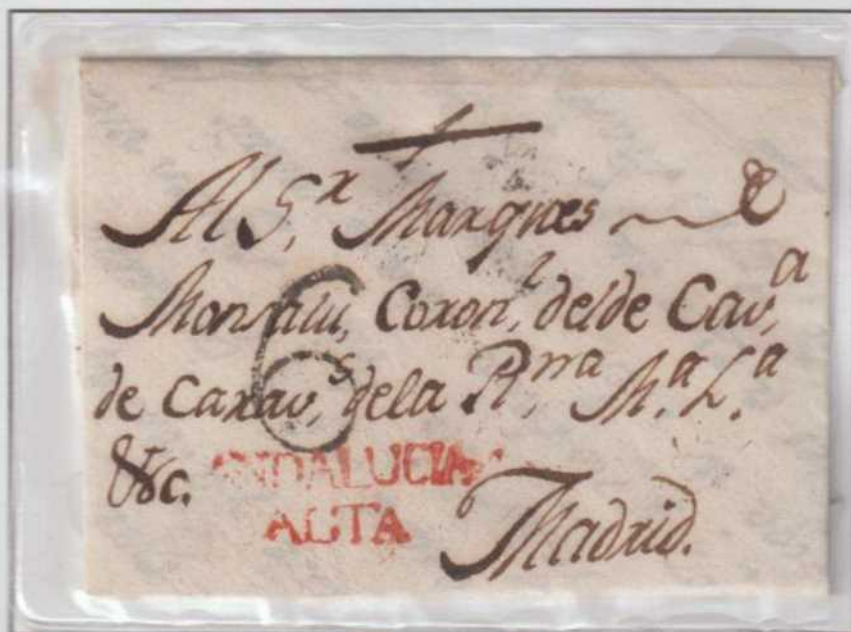 Al S.r Marques de
Monsalu, Coron.l del de Cav.a
de Carav.s dela R.na M.a L.a
&c.
6
ANDALUCIA
ALTA
Madrid.